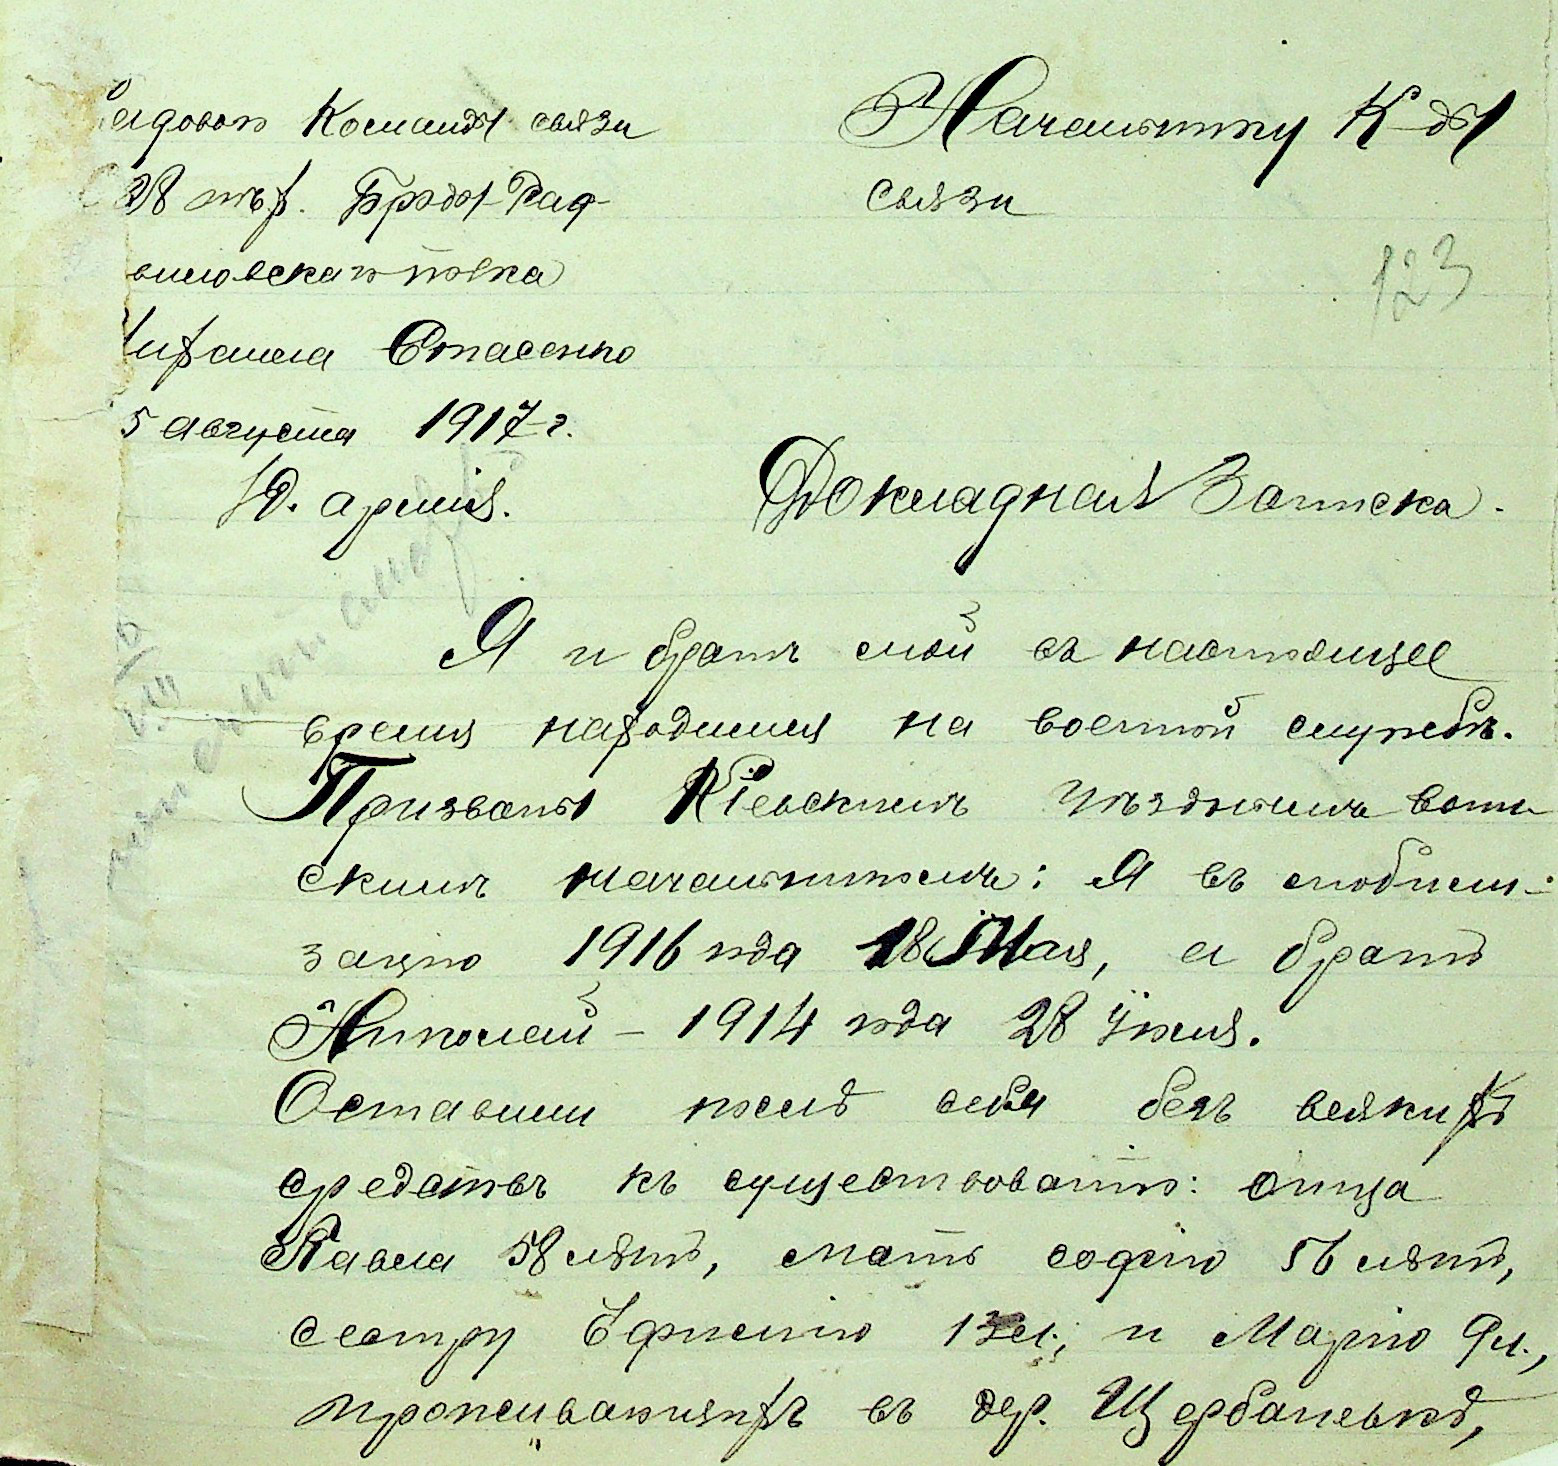 Рядовой Команды связи
пѣх. Брды-Рад-
вилловскаго полка
Михаила Стасенко
5 августа 1917 г.
Д. армія.
Начальнику К-ды
связи
123
Докладная Записка.
Я и братъ мой въ настоящее
время находимся на военной службѣ.
Призваны Кіевскимъ Уѣзднымъ воин-
скимъ начальникомъ: Я въ мобили-
зацію 1916 года 18 Мая, а братъ
Николай – 1914 года 28 Іюля.
Оставили послѣ себя безъ всякихъ
средствъ къ существованію: отца
Павла 58 лѣтъ, мать софію 56 лѣтъ,
сестру Ефимію 13 л., и Марію 9 л.,
проживающихъ въ дер. Щербаневкѣ,